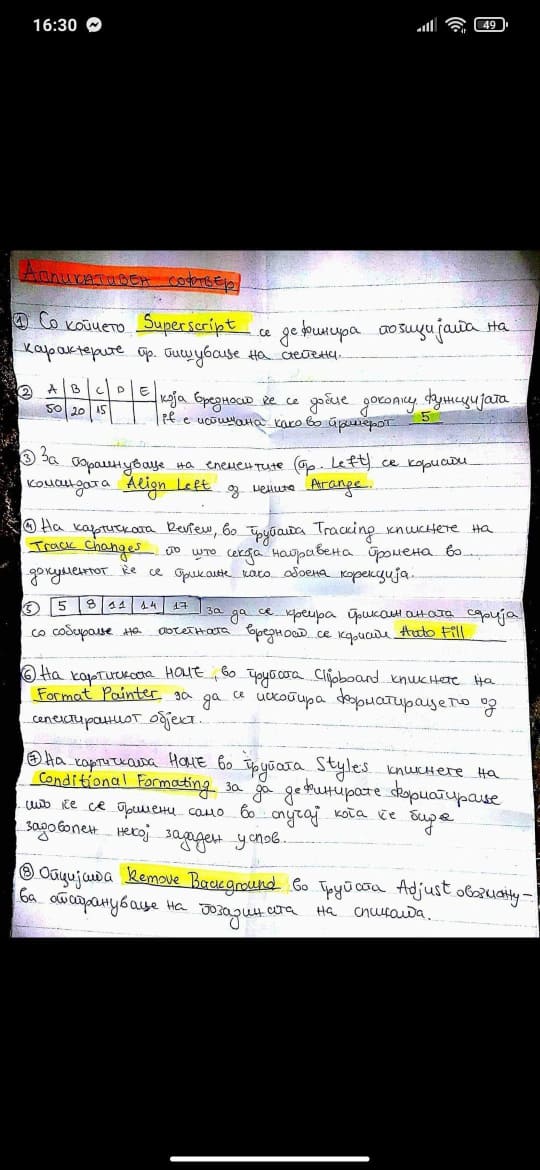 16:30
49
Апликативен софтвер
① Со копчето Superscript се дефинира позицијата на
карактерите пр. пишување на степени.
② A B C D E која вредност ќе се добие доколку функцијата
50 20 15 if е испишана како во примерот 5
③ За порамнување на елементите (пр. Left) се користи
командата Align Left од менито Arange.
④ На картичката Review, во групата Tracking кликнете на
Track Changes, по што секоја направена промена во
документот ќе се прикаже како обоена корекција.
⑤ 5 8 11 14 17 за да се креира прикажаната серија
со собирање на почетната вредност се користи Auto Fill
⑥ На картичката HOME, во групата Clipboard кликнете на
Format Painter, за да се ископира форматирањето од
селектираниот објект.
⑦ На картичката HOME во групата Styles кликнете на
Conditional Formating за да дефинирате форматирање
што ќе се примени само во случај кога ќе биде
задоволен некој зададен услов.
⑧ Опцијата Remove Background во групата Adjust овозможу-
ва отстранување на позадината на сликата.